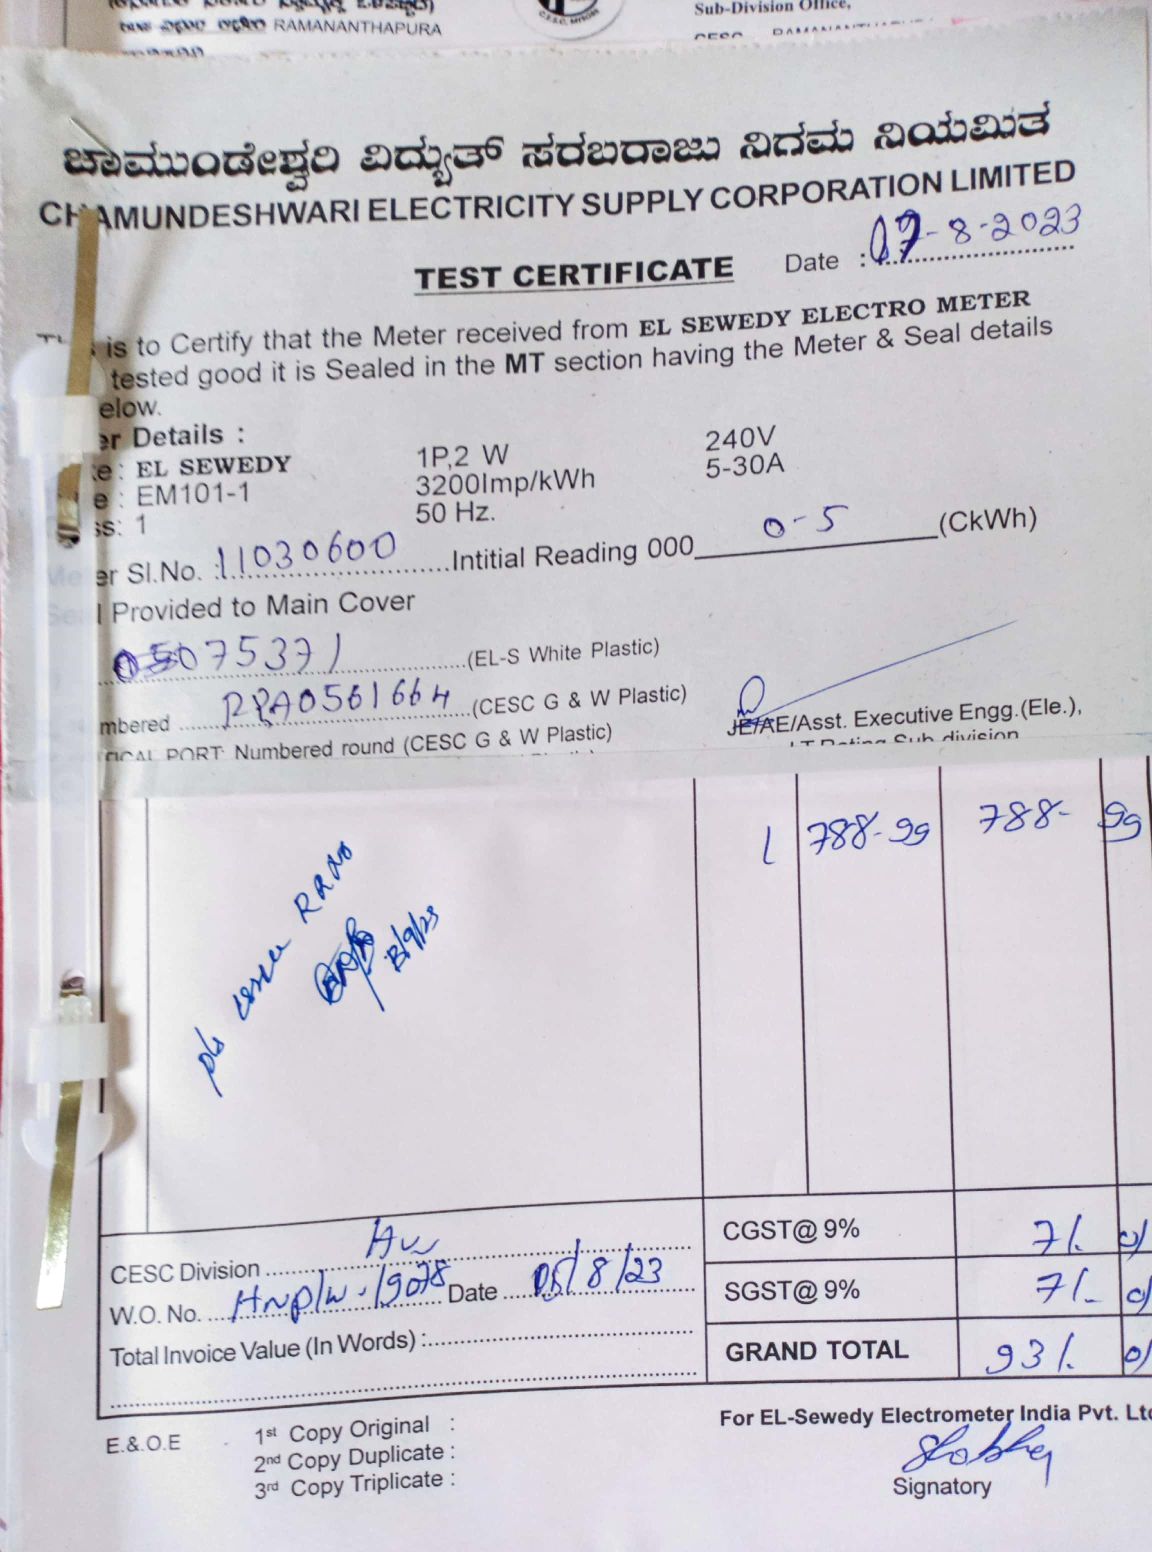 RAMANANTHAPURA
Sub-Division Office,
ಚಾಮುಂಡೇಶ್ವರಿ ವಿದ್ಯುತ್ ಸರಬರಾಜು ನಿಗಮ ನಿಯಮಿತ
CHAMUNDESHWARI ELECTRICITY SUPPLY CORPORATION LIMITED
TEST CERTIFICATE Date : 07-8-2023
is to Certify that the Meter received from EL SEWEDY ELECTRO METER
tested good it is Sealed in the MT section having the Meter & Seal details
elow.
er Details :
e: EL SEWEDY 1P,2 W 240V
e : EM101-1 3200Imp/kWh 5-30A
ss: 1 50 Hz.
Meter Sl.No. :11030600 Intitial Reading 000 0-5 (CkWh)
Seal Provided to Main Cover
075371 (EL-S White Plastic)
mbered RPA0561664 (CESC G & W Plastic)
ICAL PORT: Numbered round (CESC G & W Plastic)
JE/AE/Asst. Executive Engg.(Ele.),
LT Rating Sub division
1 788-99 788- 99
RRNo
CESC Division
W.O. No. Date 05/8/23
Total Invoice Value (In Words) :
CGST@ 9% 71.
SGST@ 9% 71-
GRAND TOTAL 931.
E.& O.E
1st Copy Original :
2nd Copy Duplicate :
3rd Copy Triplicate :
For EL-Sewedy Electrometer India Pvt. Ltd
Signatory